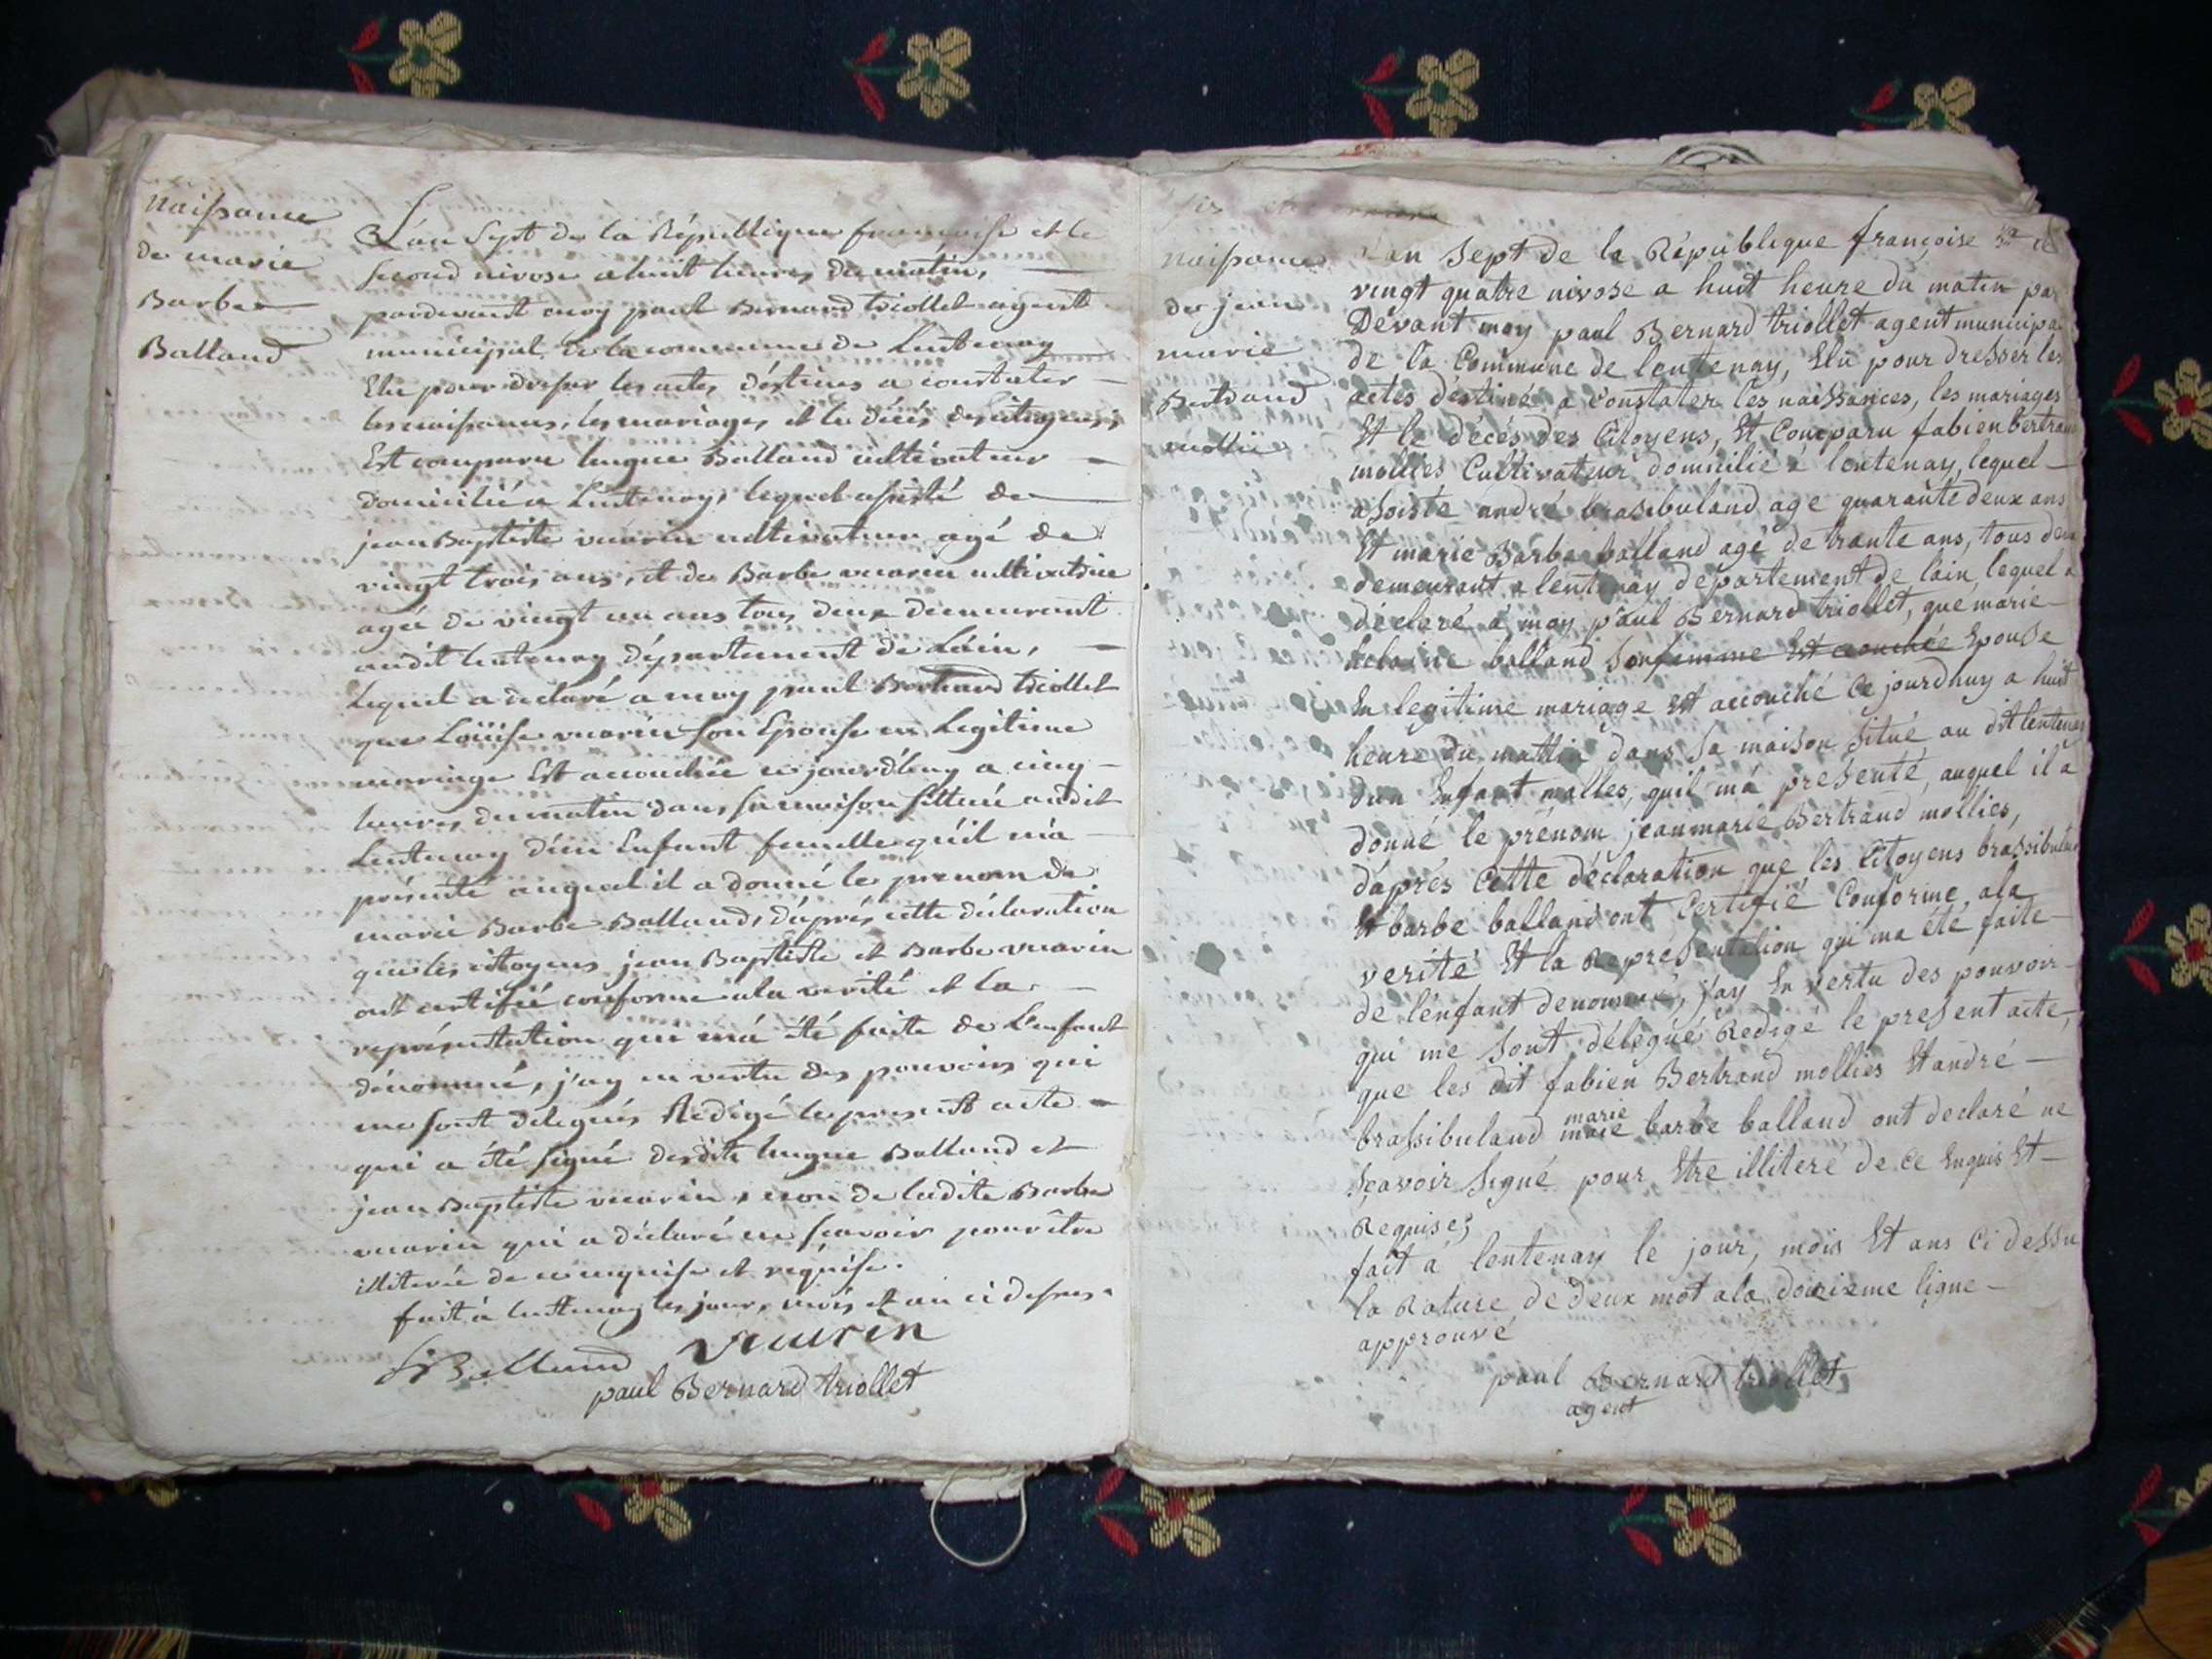 Naissance
de marie
Barbe
Balland
L'an Sept de la République françoise et le
second nivose a huit heures du matin,
pardevant moy paul Bernard triollet agent
municipal de la commune de Lentenay
Elu pour dresser les actes déstinés a constater
les naissances, les mariages et les décés des citoyens,
Est comparu hugue Balland cultivateur
domicilié a Lentenay, lequel assisté de
jean Baptiste vuarin cultivateur agé de
vingt trois ans, et de Barbe vuarin cultivatrice
agée de vingt un ans tous deux demeurant
audit lentenay département de Láin,
Lequel a déclaré a moy paul Bernard triollet
que Loüise vuarin son Epouse en Legitime
mariage Est accouchée ce jourd'huy a cinq
heures du matin dans sa maison sittuée audit
Lentenay d'un Enfant femelle qu'il m'a
présenté auquel il a donné les prenom de
marie Barbe Balland, d'aprés cette déclaration
que les citoyens jean Baptiste et Barbe vuarin
ont certifié conforme a la verité et la
représentation qui m'a été faite de L'enfant
dénommé, j'ay en vertu des pouvoirs qui
me sont delegués Redigé le present acte
qui a été signé desdits hugue Balland et
jean Baptiste vuarin, non de ladite Barbe
vuarin qui a déclaré ne scavoir pour être
illiterée de ce enquise et requise.
fait á lentenay les jour, mois et an ci dessus.
Balland vuarin
paul Bernard triollet
Naissance
de jean
marie
Bertrand
mollie
L'an Sept de la République françoise et le
vingt quatre nivose a huit heure du matin par
Dévant moy paul Bernard triollet agent municipal
de la Commune de lentenay, Elu pour dresser les
actes déstiné a constater les naissances, les mariages
Et le décés des Citoyens, Et Comparu fabien bertrand
mollies Cultivateur domicilié á lentenay, lequel
assisté andré brassibuland agé quarante deux ans
Et marie Barbe balland agé de trante ans, tous deux
demeurant a lentenay département de lain, lequel a
décleré á moy paul Bernard triollet, que marie
balland son femme Est accouchée Epouse
En legitime mariage Est accouché Ce jourdhuy a huit
heure du mattin dans sa maison situé au dit lentenay
dun Enfant malles, quil má presenté, auquel il a
donné le prénom jean marie Bertrand mollies,
dáprés Cette déclaration que les Citoyens brassibuland
Et barbe balland ont Certifié Conforme, a la
verité Et la Representation qui ma été faite
de lénfant denommé, j'ay En vertu des pouvoir
qui me sont délégué Redigé le present acte,
que les dit fabien Bertrand mollies Et andré
brassibuland marie barbe balland ont declaré ne
sçavoir signé pour Etre illiteré de Ce Enquis Et
Requises
fait á lentenay le jour, mois Et ans Ci dessu
la Rature de deux mot a la douzieme ligne
approuvé
paul Bernard triollet
agent